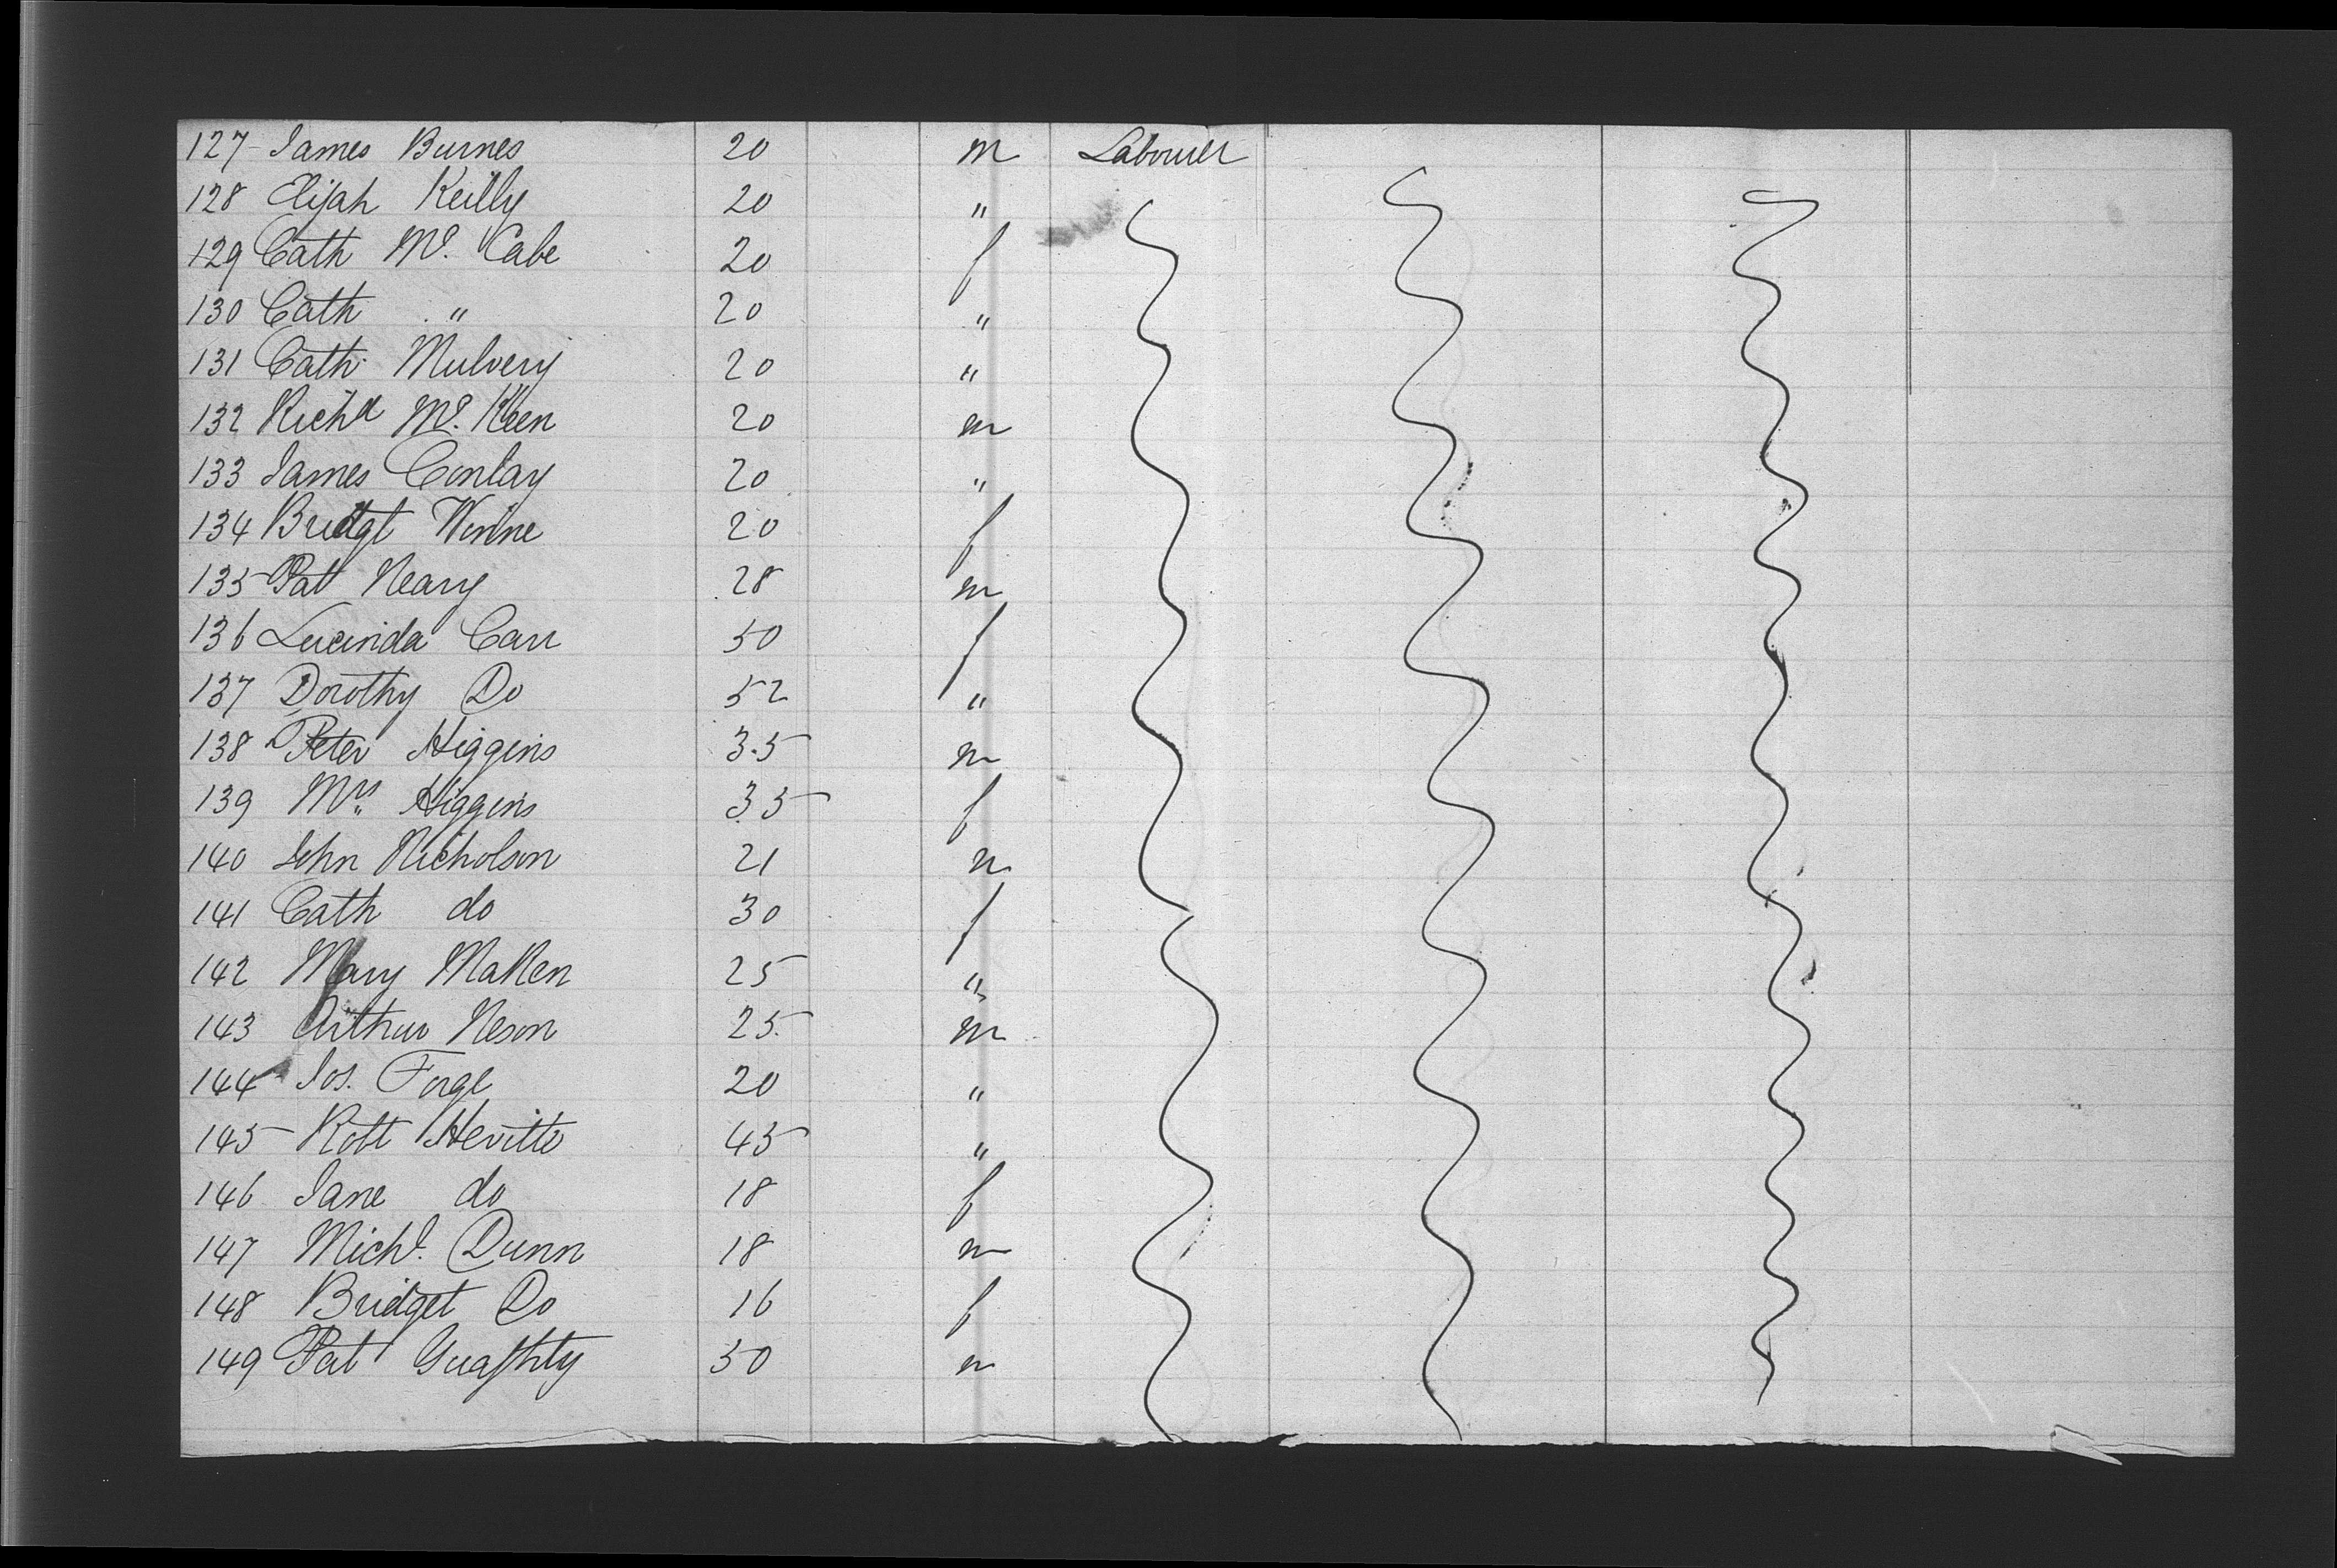 127 James Burnes 20 m Labourer
128 Elijah Keilly 20 "
129 Cath Mc. Cabe 20 f
130 Cath " 20 "
131 Cath Mulvery 20 "
132 Richd Mc. Keen 20 m
133 James Conlay 20 "
134 Bridgt Winne 20 f
135 Pat Neary 28 m
136 Lucinda Carr 50 f
137 Dorothy Do 52 "
138 Peter Higgins 35 m
139 Mrs Higgins 35 f
140 John Nicholson 21 m
141 Cath do 30 f
142 Mary Mallen 25 "
143 Arthur Neson 25 m
144 Jos. Forge 20 "
145 Robt Hevitte 45 "
146 Jane do 18 f
147 Michl. Dunn 18 m
148 Bridget Do 16 f
149 Pat 50 m